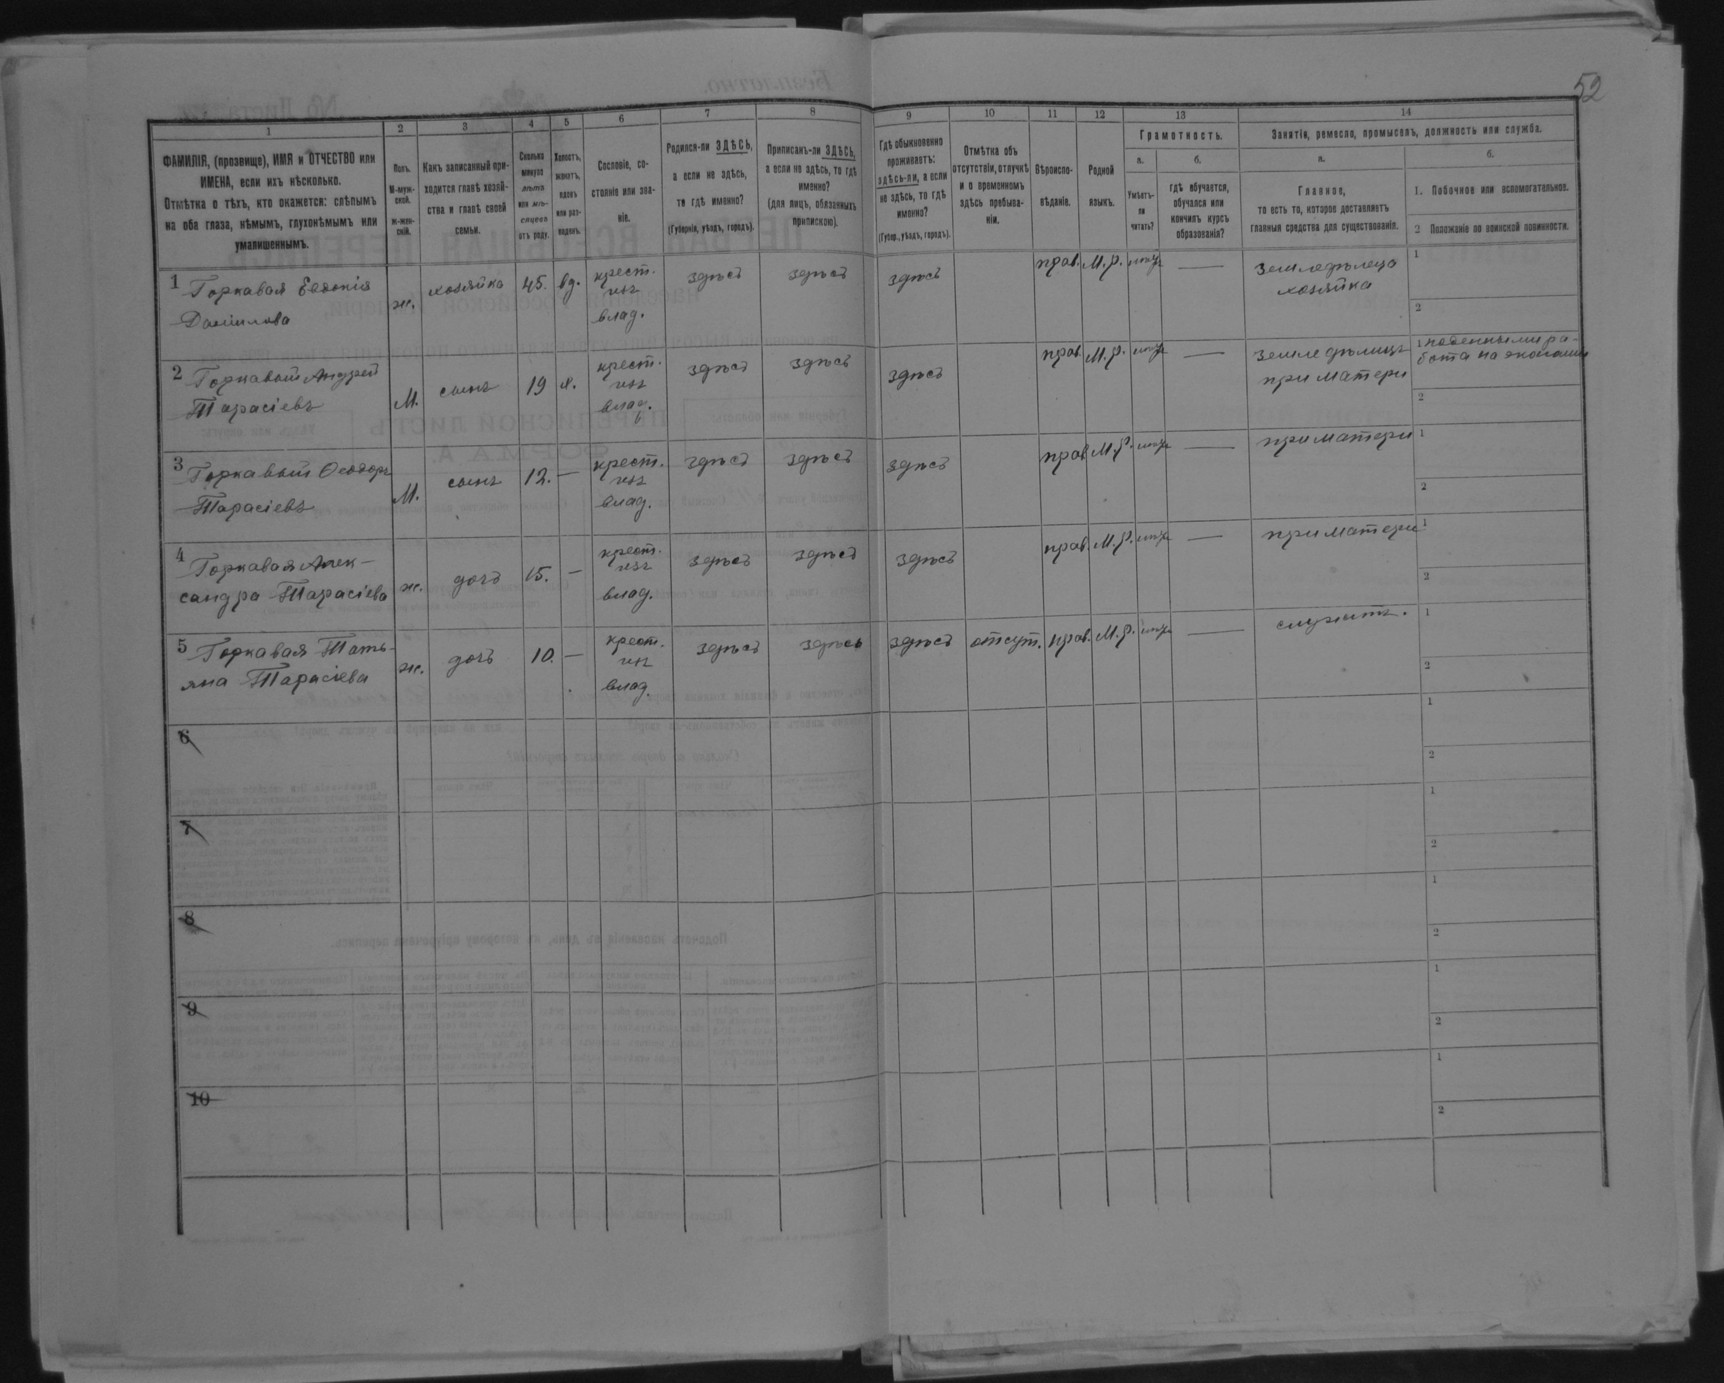 52
1 2 3 4 5 6 7 8 9 10 11 12 13 14
ФАМИЛІЯ, (прозвище), ИМЯ и ОТЧЕСТВО или
ИМЕНА, если ихъ нѣсколько.
Отмѣтка о тѣхъ, кто окажется: слѣпымъ
на оба глаза, нѣмымъ, глухонѣмымъ или
умалишеннымъ.
Полъ.
М-муж-
ской.
ж-жен-
скій.
Какъ записанный при-
ходится главѣ хозяй-
ства и главѣ своей
семьи.
Сколько
минуло
лѣтъ
или мѣ-
сяцевъ
отъ роду.
Холостъ,
женатъ,
вдовъ
или раз-
веденъ.
Сословіе, со-
стояніе или зва-
ніе.
Родился-ли ЗДѢСЬ,
а если не здѣсь,
то гдѣ именно?
(Губернія, уѣздъ, городъ).
Приписанъ-ли ЗДѢСЬ,
а если не здѣсь, то гдѣ
именно?
(для лицъ, обязанныхъ
припискою).
Гдѣ обыкновенно
проживаетъ:
здѣсь-ли, а если
не здѣсь, то гдѣ
именно?
(Губер., уѣздъ, городъ).
Отмѣтка объ
отсутствіи, отлучкѣ
и о временномъ
здѣсь пребыва-
ніи.
Вѣроиспо-
вѣданіе.
Родной
языкъ.
Грамотность.
а.
Умѣетъ-
ли
читать?
б.
гдѣ обучается,
обучался или
кончилъ курсъ
образованія?
Занятіе, ремесло, промыселъ, должность или служба.
а.
Главное,
то есть то, которое доставляетъ
главныя средства для существованія.
б.
1. Побочное или вспомогательное.
2 Положеніе по воинской повинности.
1 Горкавая Евдокія
Данилова
ж. хозяйка 45. вд. крест.
изъ
влад.
здѣсь здѣсь здѣсь прав. М.р. —
земледѣлецъ
хозяйка
1
2
2 Горкавый Андрей
Тарасіевъ
М. сынъ 19 х. крест.
изъ
влад.
здѣсь здѣсь здѣсь прав. М.р. —
земледѣлецъ
при матери
1 поденными ра-
бота на экономіи
2
3 Горкавый Ѳеодоръ
Тарасіевъ
М. сынъ 12. — крест.
изъ
влад.
здѣсь здѣсь здѣсь прав. М.р. —
при матери
1
2
4 Горкавая Алек-
сандра Тарасіева
ж. дочь 15. — крест.
изъ
влад.
здѣсь здѣсь здѣсь прав. М.р. —
при матери
1
2
5 Горкавая Тать-
яна Тарасіева
ж. дочь 10. — крест.
изъ
влад.
здѣсь здѣсь здѣсь отсут. прав. М.р. —
служитъ.
1
2
6
1
2
7
1
2
8
1
2
9
1
2
10
1
2